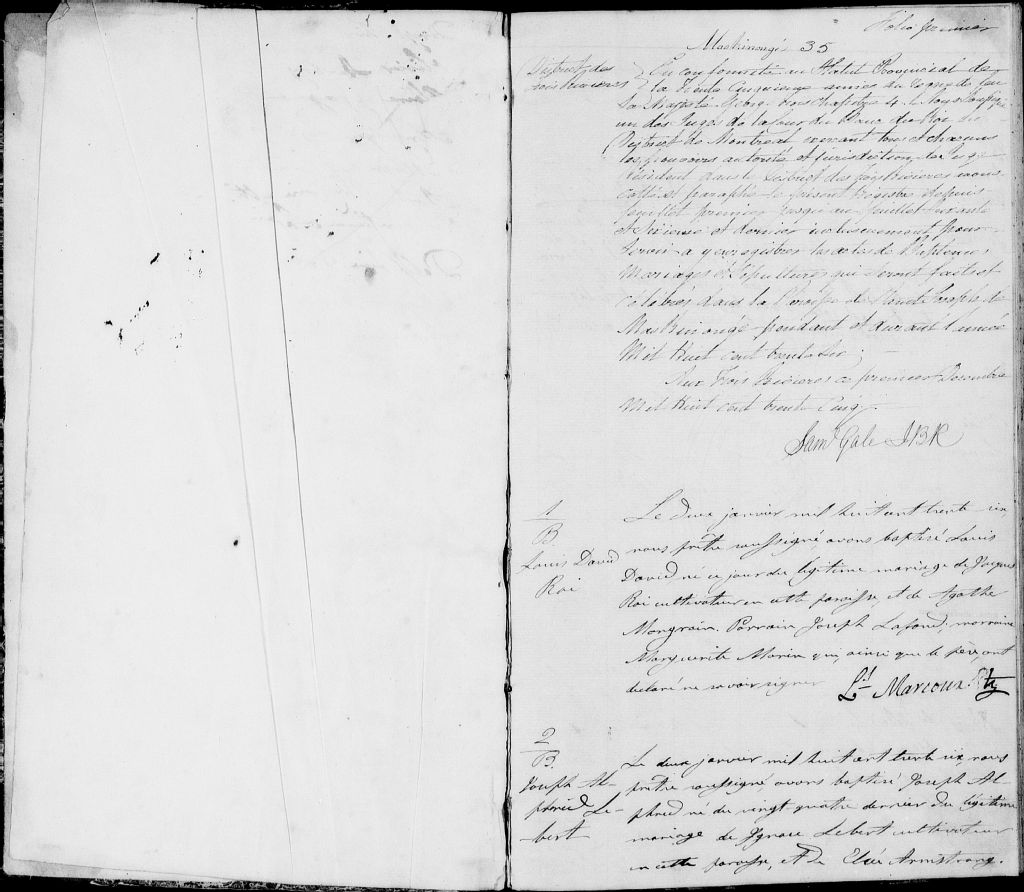 Folio premier
Maskinongé 35
District des
trois Rivières
En conformité au Statut Provincial de
la Trente Cinquième année du règne de feu
Sa Majesté George trois Chapitre 4 le
un des Juges de la Cour du Banc du Roi du
District de Montréal ayant tous et chacuns
les pouvoirs autorité et jurisdiction de Juge
résident dans le District des trois Rivières avons
cotté et paraphé le présent Régistre depuis
feuillet premier jusqu'au feuillet
et dernier inclusivement pour
servir a y enregistrer les actes de Baptêmes
Mariages et Sépultures qui seront faits et
célébrés dans la Paroisse de Saint Joseph de
Maskinongé pendant et durant l'année
Mil Huit cent trente Six
Aux Trois Rivières ce premier Decembre
Mil Huit cent trente Cinq
Saml Gale JBR
1
B.
Louis David
Roi
Le deux janvier mil huit cent trente six,
nous prêtre soussigné, avons baptisé Louis
David né ce jour du légitime mariage de Jacques
Roi cultivateur en cette paroisse, et de Agathe
Mongrain. Parrain Joseph Lafond, marraine
Marguerite Marin qui, ainsi que le père, ont
declaré ne savoir signer Ls Marcoux Ptre
2
B.
Joseph Al-
phred Le-
bert
Le deux janvier mil huit cent trente six, nous
prêtre soussigné, avons baptisé Joseph Al-
phred né du vingt-quatre dernier du légitime
mariage de Ignace Lebert cultivateur
en cette paroisse, et de Armstrong.